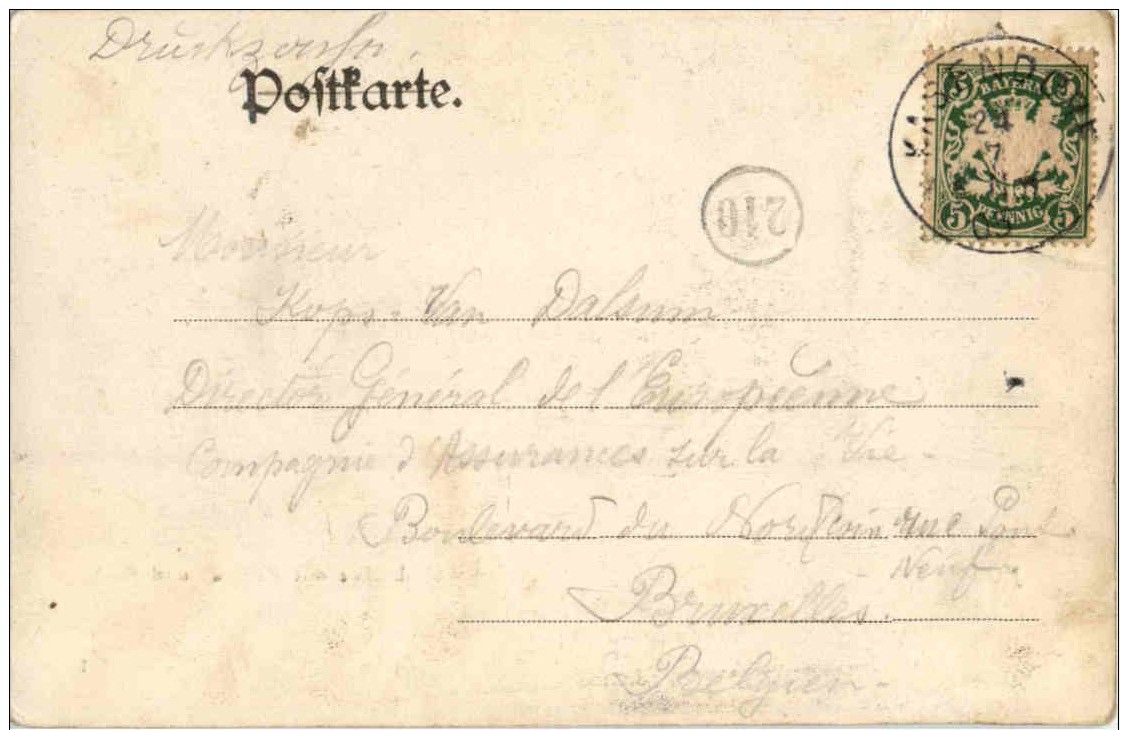 Drucksache.
Postkarte.
KASENDORF
24
7
03
BAYERN
5 5
5 PFENNIG 5
210
Monsieur
Kops-Van Dalsum
Director Général de l'Européenne
Compagnie d'Assurances sur la Vie-
Boulevard du Nord coin rue Pont
Neuf-
Bruxelles.
Belgien-